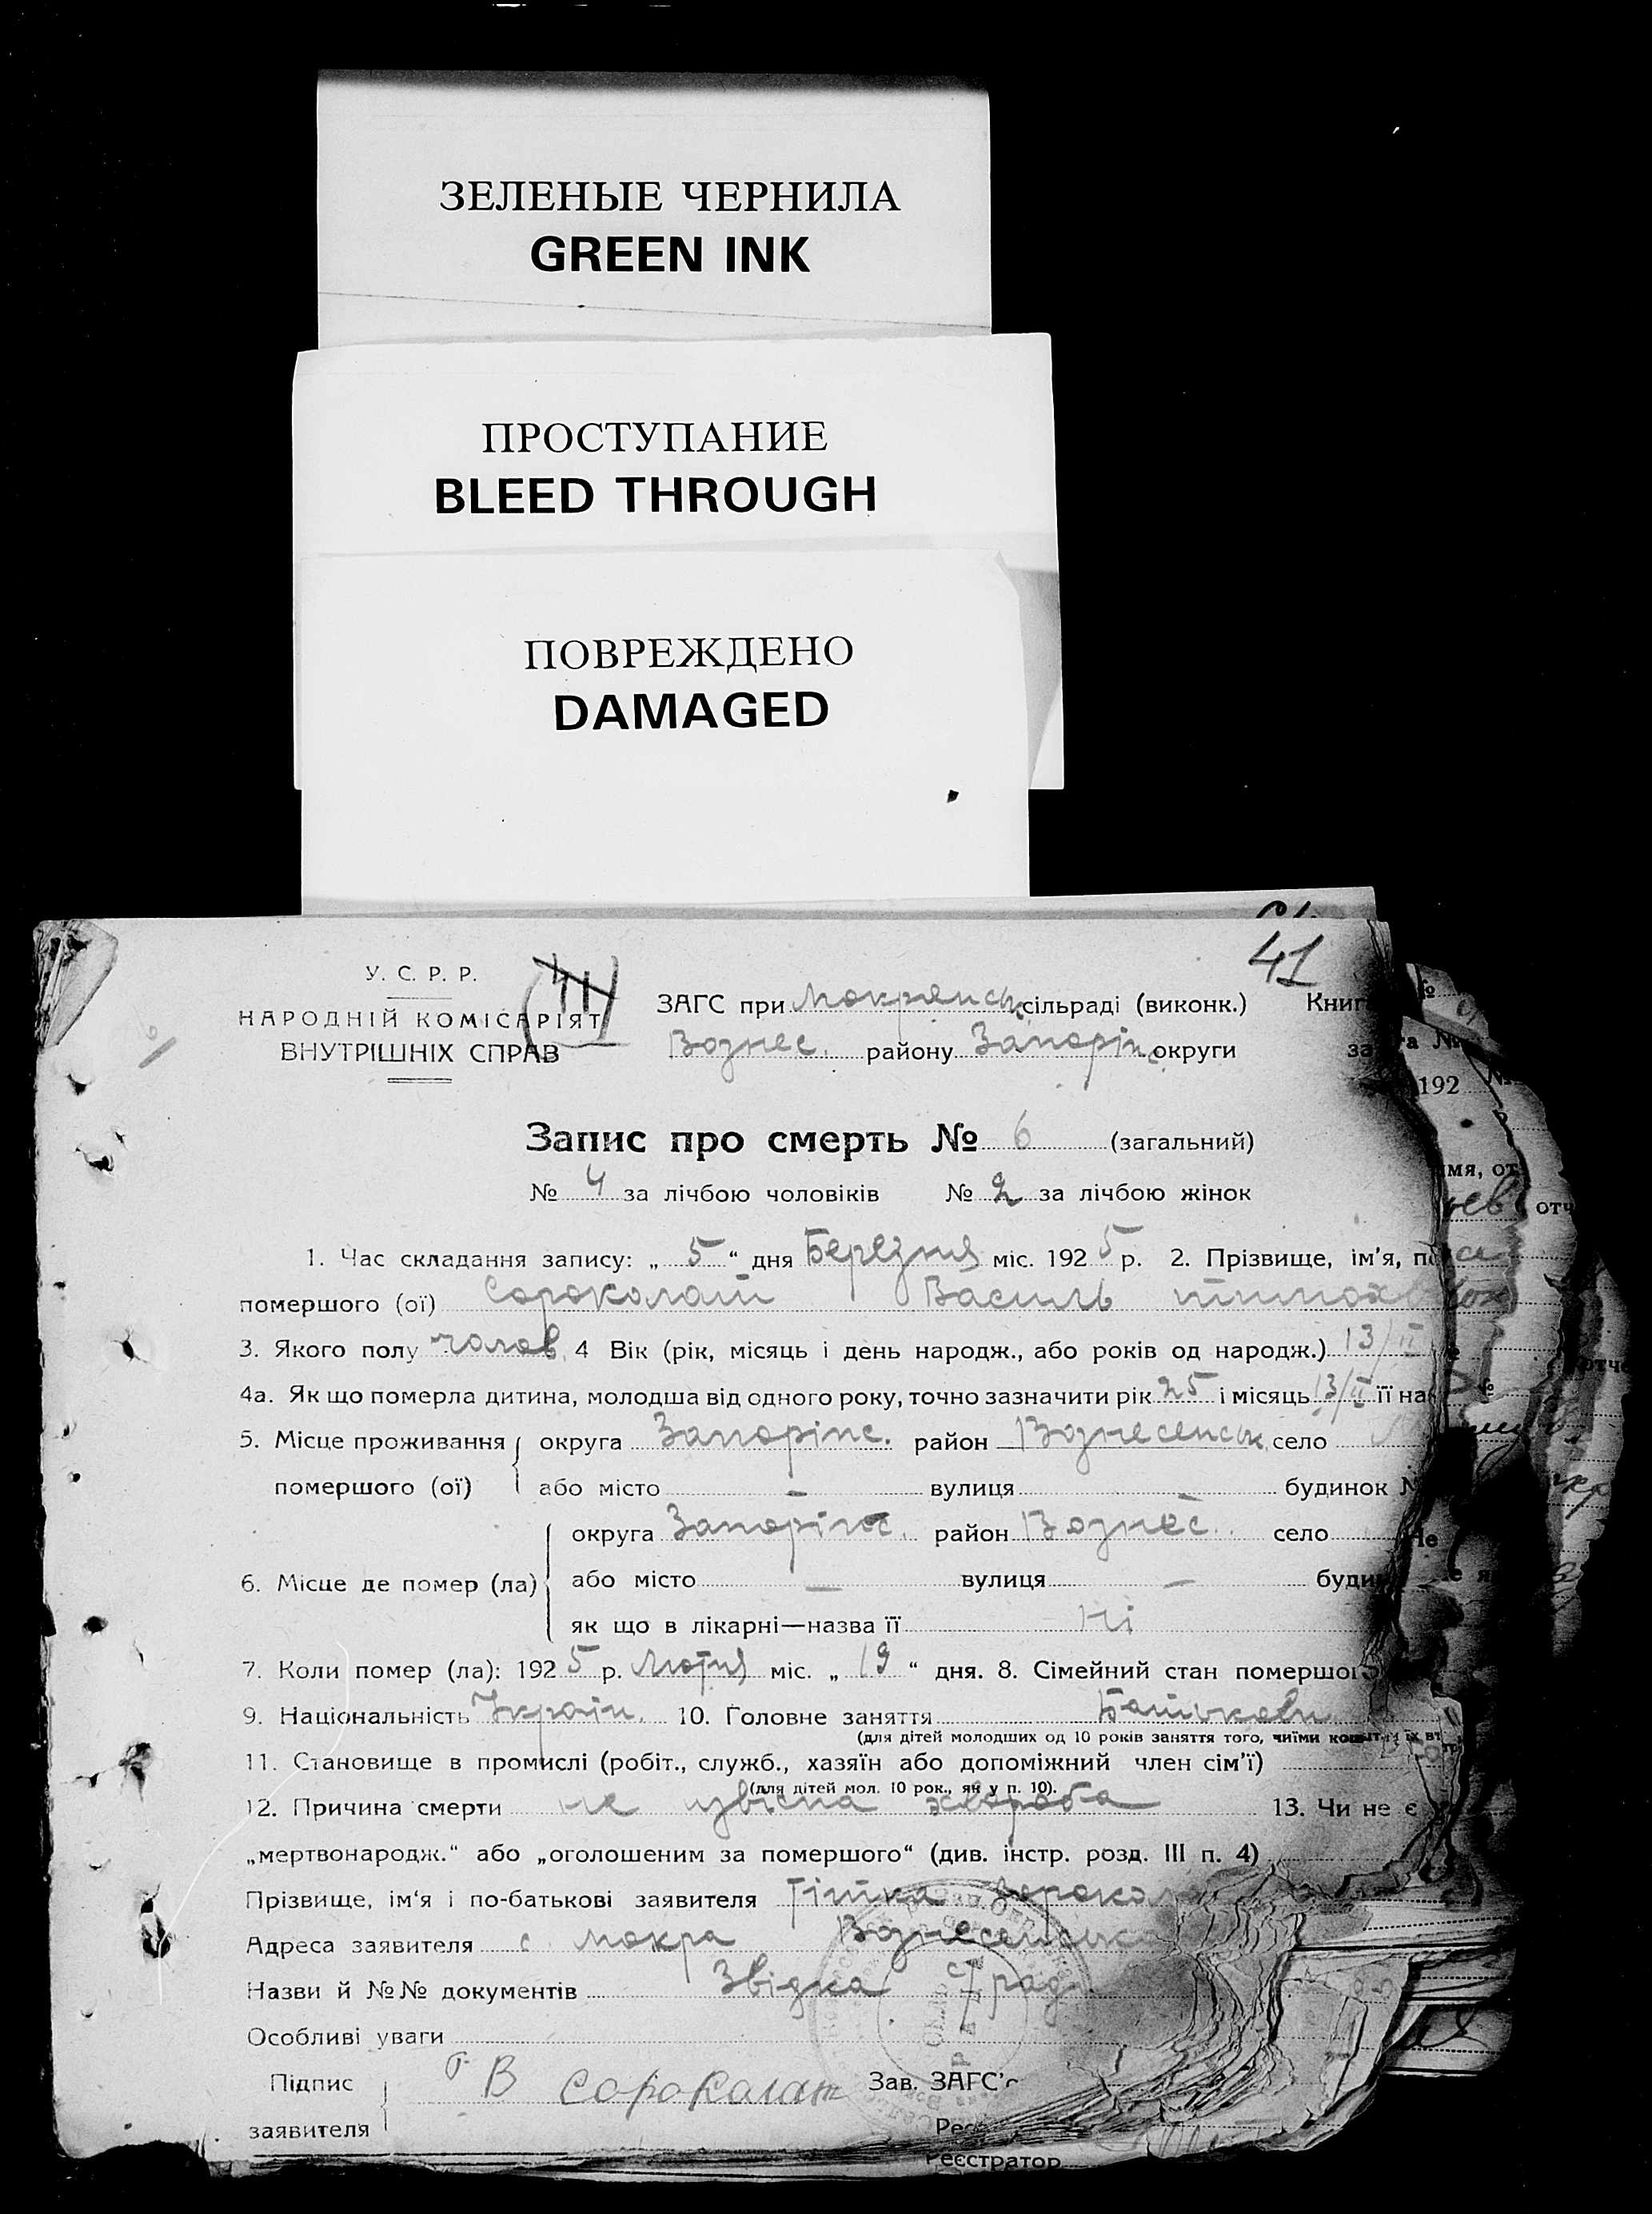 ЗЕЛЕНЫЕ ЧЕРНИЛА
GREEN INK
ПРОСТУПАНИЕ
BLEED THROUGH
ПОВРЕЖДЕНО
DAMAGED
41
У. С. Р. Р.
НАРОДНІЙ КОМІСАРІЯТ
ВНУТРІШНІХ СПРАВ
ЗАГС при Мокрянськ сільраді (виконк.) Книг
Вознес. району Запоріж округи за
Запис про смерть № 6 (загальний)
№ 4 за лічбою чоловіків № 2 за лічбою жінок
1. Час складання запису: „ 5 “ дня Березня міс. 192 5 р. 2. Прізвище, ім'я, по
помершого (ої) Сороколат Василь
3. Якого полу чолов. 4 Вік (рік, місяць і день народж., або років од народж.) 13/II
4а. Як що померла дитина, молодша від одного року, точно зазначити рік 25 і місяць 13/II її на
5. Місце проживання округа Запоріж. район Вознесенськ. село
помершого (ої) або місто — вулиця будинок №
6. Місце де помер (ла) округа Запоріж. район Вознес. село
або місто — вулиця — буди
як що в лікарні—назва її Ні
7. Коли помер (ла): 192 5 р. Лютня міс. „ 19 “ дня. 8. Сімейний стан помершо
9. Національність Україн. 10. Головне заняття Батькови
(для дітей молодших од 10 років заняття того, чиїми кошт
11. Становище в промислі (робіт., служб., хазяїн або допоміжний член сім'ї)
(для дітей мол. 10 рок., як у п. 10).
12. Причина смерти не звісна хвороба 13. Чи не є
„мертвонародж.“ або „оголошеним за помершого“ (див. інстр. розд. III п. 4)
Прізвище, ім'я і по-батькові заявителя Тітка
Адреса заявителя с. Мокра Вознесенсько
Назви й №№ документів Звідка с/рад
Особливі уваги
Підпис заявителя В Сороколат
Зав. ЗАГС'
Реєстратор